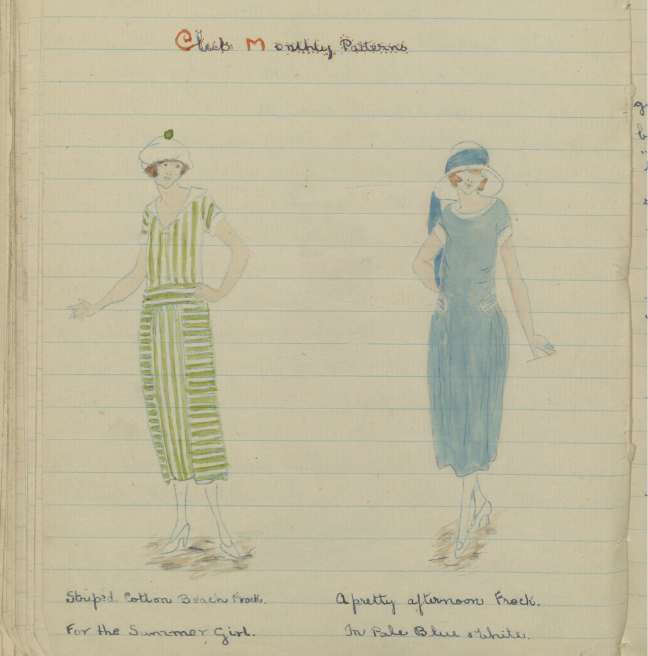 Monthly Patterns
Striped Cotton Beach Frock.
For the Summer Girl.
A pretty afternoon Frock.
In Pale Blue & White.